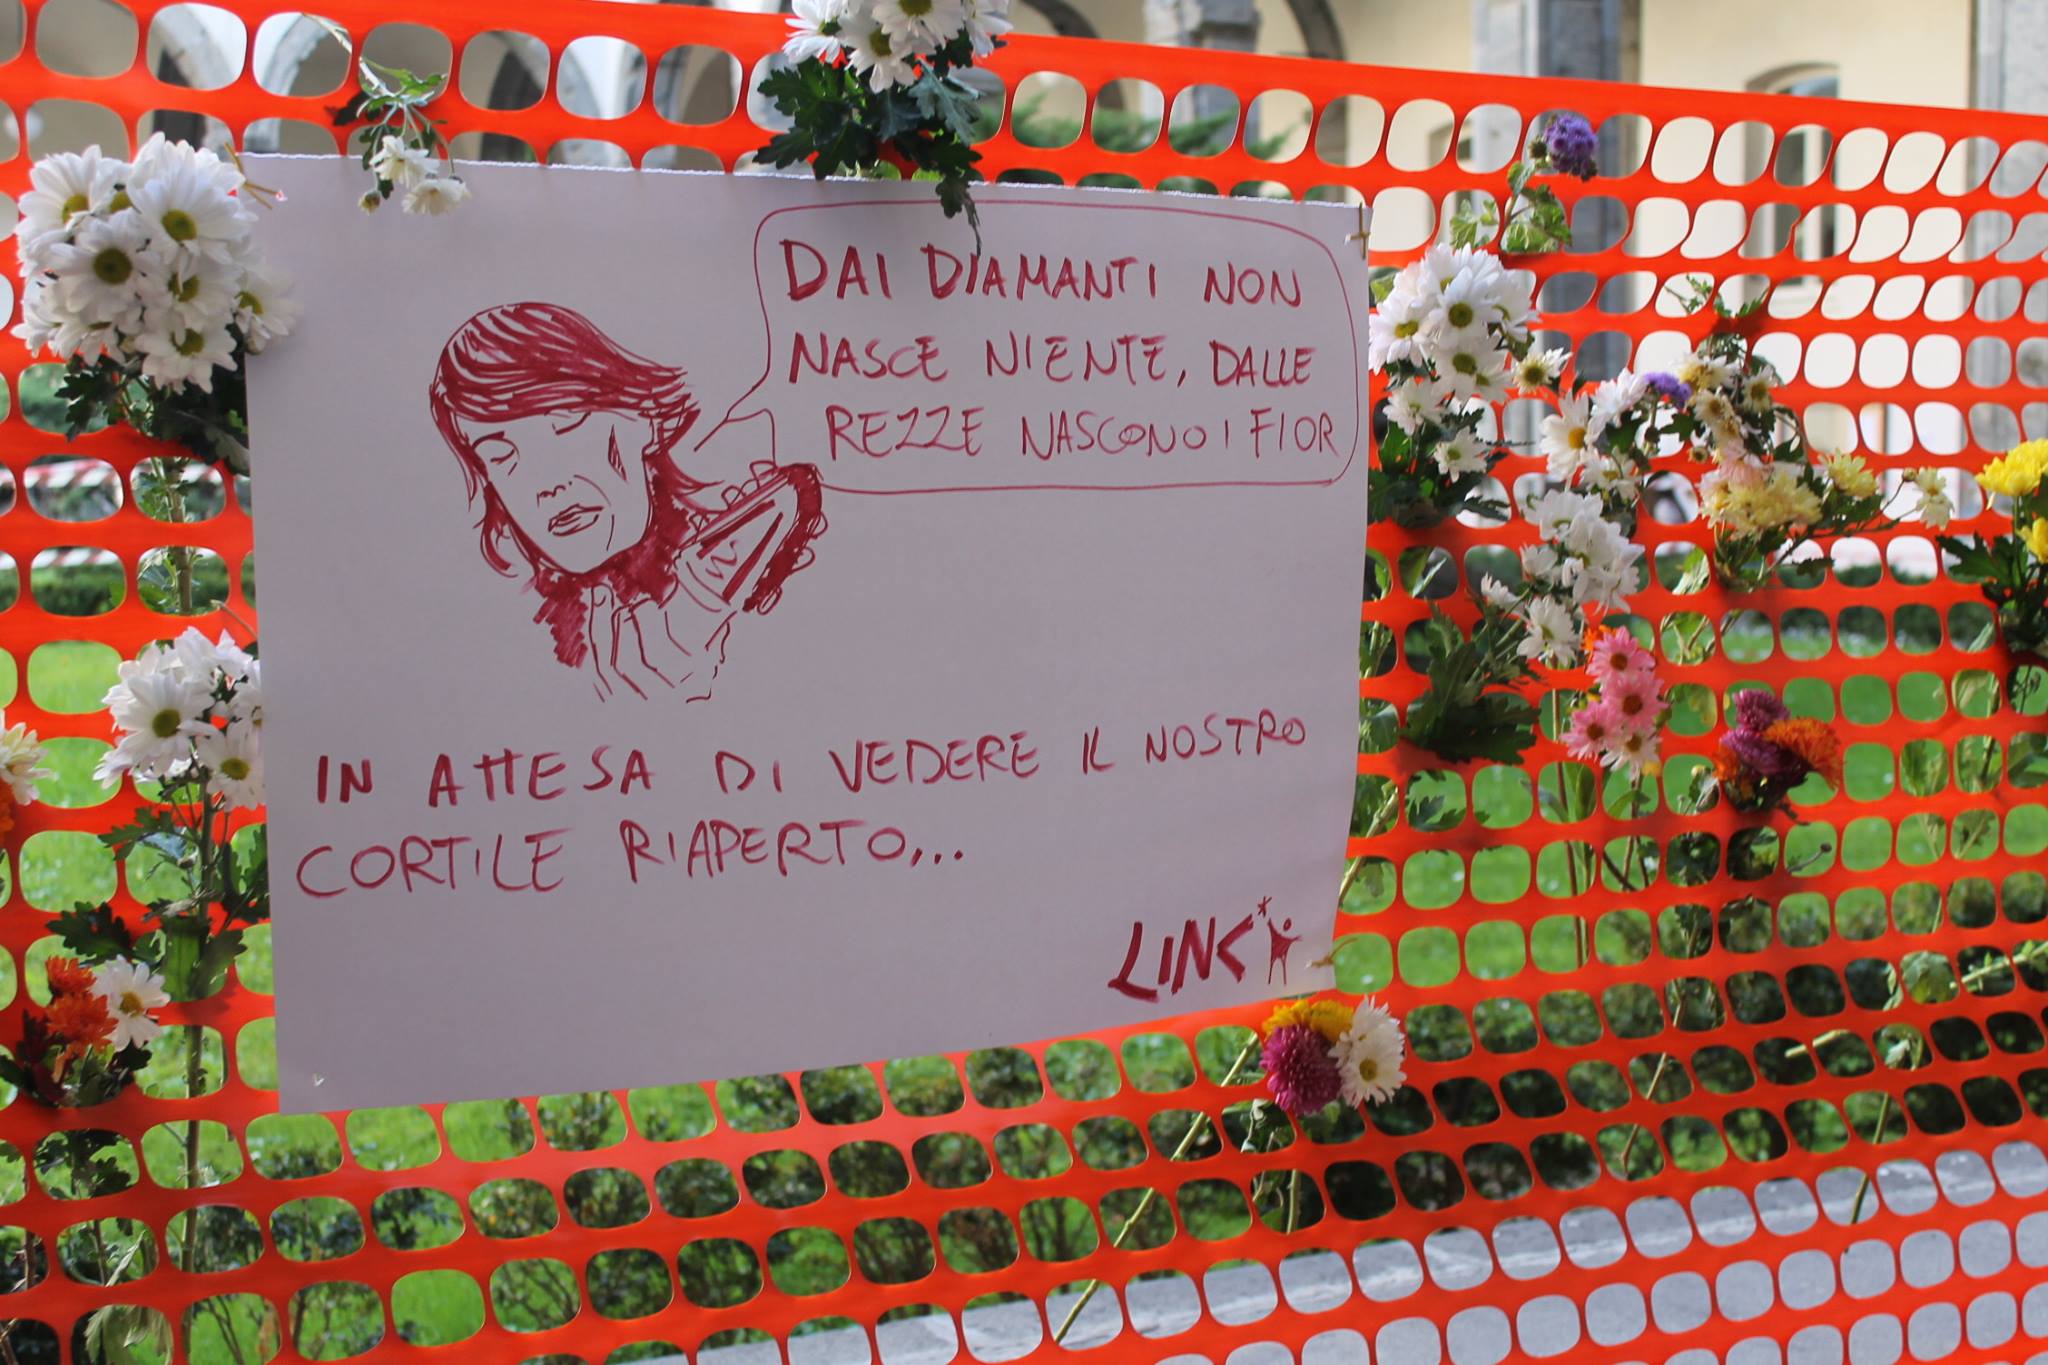 DAI DIAMANTI NON
NASCE NIENTE, DALLE
REZZE NASCONO I FIOR
IN ATTESA DI VEDERE IL NOSTRO
CORTILE RIAPERTO...
LINK*